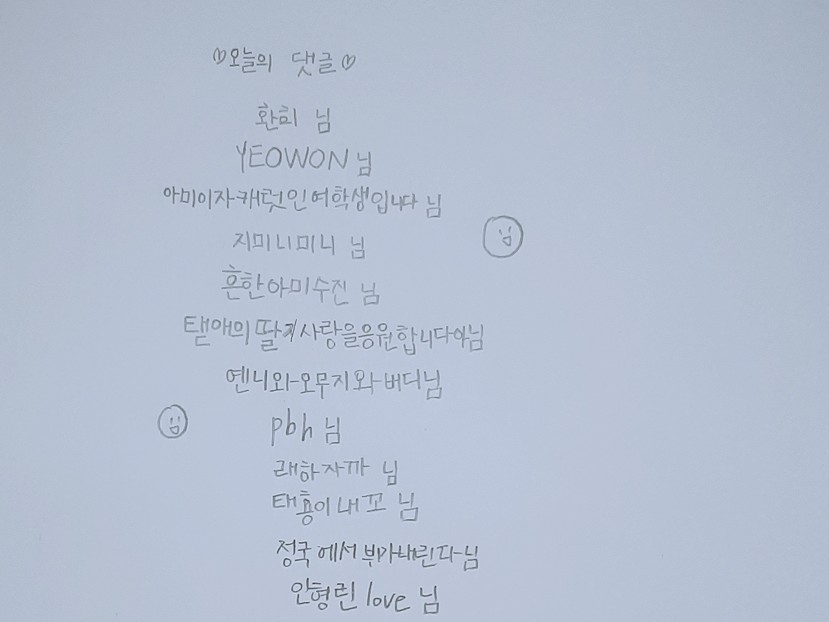 ♡오늘의 댓글♡
환희 님
YEOWON 님
아미이자캐럿인여학생입니다 님
지미니미니 님
님
흔한아미수진 님
탵애의 딸기사랑을응원합니다아님
옌니와오무지와버디님
님
pbh 님
래하자까 님
태횽이내꼬 님
정국에서 뷔가내린다님
안형린 love 님